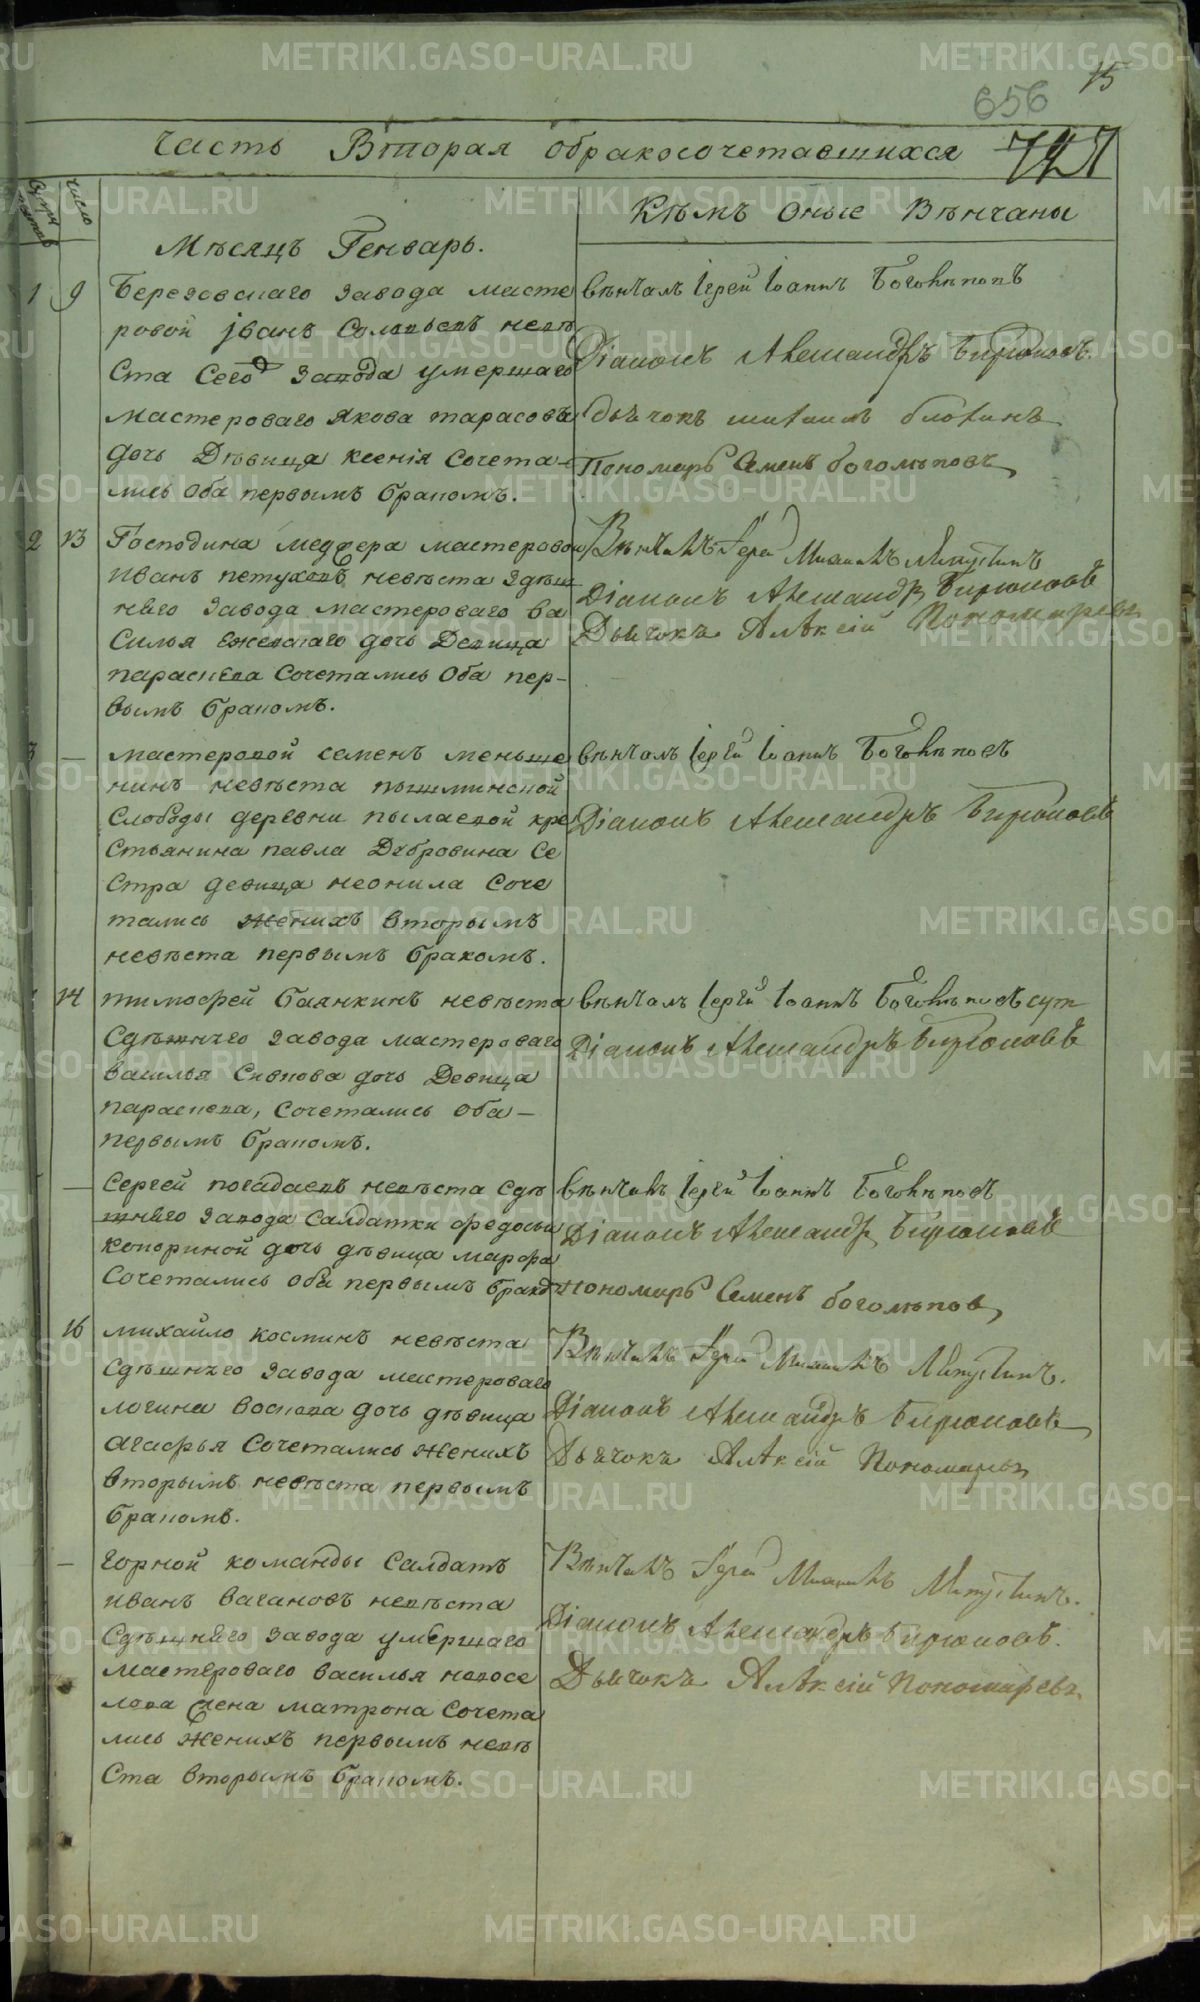 15
656
727
Часть Вторая обракосочетавшихся
число
Кѣмъ оные Вѣнчаны
Мѣсяцъ Генварь.
1 9 Березовскаго завода масте
ровой Іванъ Соловьевъ невѣ
ста сего завода умершаго
мастероваго Якова тарасова
дочь Дѣвица ксенія сочета-
лись оба первымъ бракомъ.
вѣнчалъ Іерей Іоаннъ Боголѣповъ
Діаконъ Александръ Бирюковъ
дьячокъ михаилъ блохинъ
Пономарь Семенъ боголѣповъ
2 13 Господина медфера мастеровой
Иванъ петуховъ, невѣста здѣш
няго завода мастероваго ва
силья ежевскаго дочь Девица
параскева сочетались оба пер-
вымъ бракомъ.
Вѣнчалъ Іерей Михаилъ
Діаконъ Александръ Бирюковъ
Дьячокъ Алѣксій Пономаревъ
3 — мастеровой семенъ меньше
нинъ невѣста пышминской
слободы деревни пылаевой кре
стьянина павла Дубровина се
стра девица неонила соче
тались женихъ вторымъ
невѣста первымъ бракомъ.
вѣнчалъ Іерей Іоаннъ Боголѣповъ
Діаконъ Александръ Бирюковъ
14 тимофей баянкинъ невѣста
сдѣшнего завода мастероваго
василья Сивкова дочь Девица
параскева, сочетались оба —
первымъ бракомъ.
вѣнчалъ Іерей Іоаннъ Боголѣповъ
Діаконъ Александръ Бирюковъ
— сергей погадаевъ невѣста сдѣ
шняго завода салдатки федосьи
копориной дочь дѣвица марфа
сочетались оба первымъ брако
вѣнчалъ Іерей Іоаннъ Боголѣповъ
Діаконъ Александръ Бирюковъ
пономарь Семенъ боголѣповъ
16 михайло костинъ невѣста
сдѣшнего завода мастероваго
логина дочь дѣвица
агафья сочетались женихъ
вторымъ невѣста первымъ
бракомъ.
Вѣнчалъ Іерей Михаилъ
Діаконъ Александръ Бирюковъ
Дьячокъ Алѣксій Пономаревъ
— горной команды салдатъ
иванъ вагановъ невѣста
сдѣшняго завода умершаго
мастероваго василья новосе
лова жена матрона сочета
лись женихъ первымъ невѣ
ста вторымъ бракомъ.
Вѣнчалъ Іерей Михаилъ
Діаконъ Александръ Бирюковъ.
Дьячокъ Алѣксій Пономаревъ
METRIKI.GASO-URAL.RU